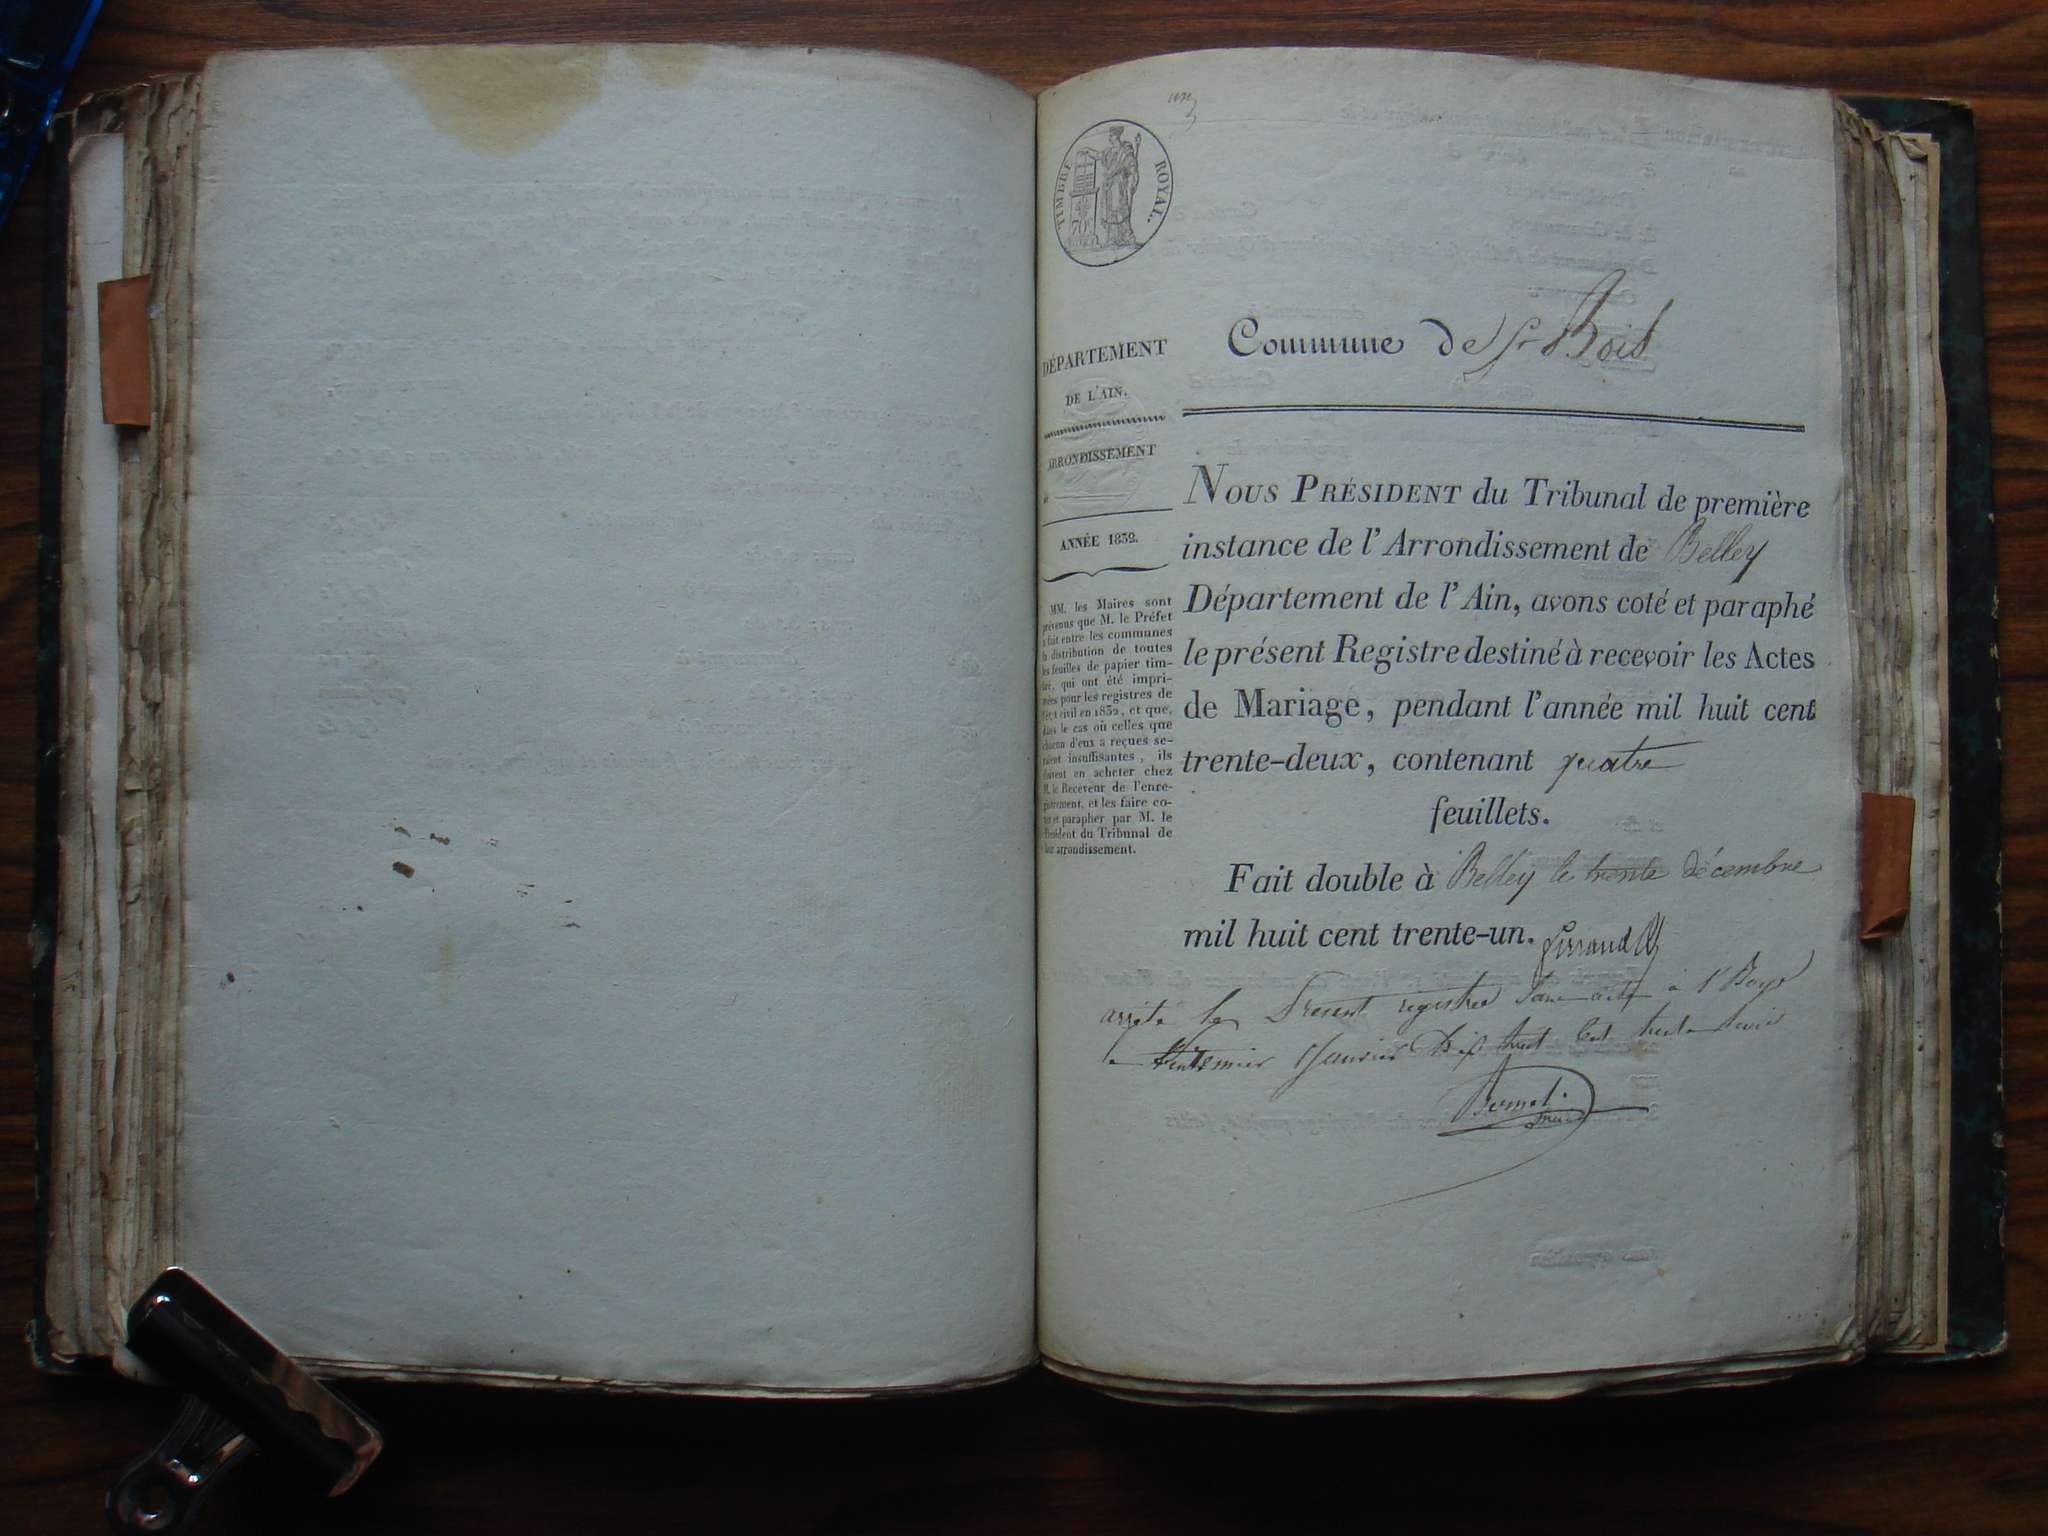 un
TIMBRE ROYAL.
Commune de St Bois
DÉPARTEMENT
DE L'AIN.
ARRONDISSEMENT
de
ANNÉE 1832.
MM. les Maires sont
prévenus que M. le Préfet
a fait entre les communes
la distribution de toutes
les feuilles de papier tim-
bré, qui ont été impri-
mées pour les registres de
l'état civil en 1832, et que,
dans le cas où celles que
chacun d'eux a reçues se-
raient insuffisantes, ils
doivent en acheter chez
M. le Receveur de l'enre-
gistrement, et les faire co-
ter et parapher par M. le
Président du Tribunal de
leur arrondissement.
NOUS PRÉSIDENT du Tribunal de première
instance de l'Arrondissement de Belley
Département de l'Ain, avons coté et paraphé
le présent Registre destiné à recevoir les Actes
de Mariage, pendant l'année mil huit cent
trente-deux, contenant quatre
feuillets.
Fait double à Belley le trente décembre
mil huit cent trente-un.
arrêté le Present registre sans acte à St Boys
le janvier mil huit Cent trente trois